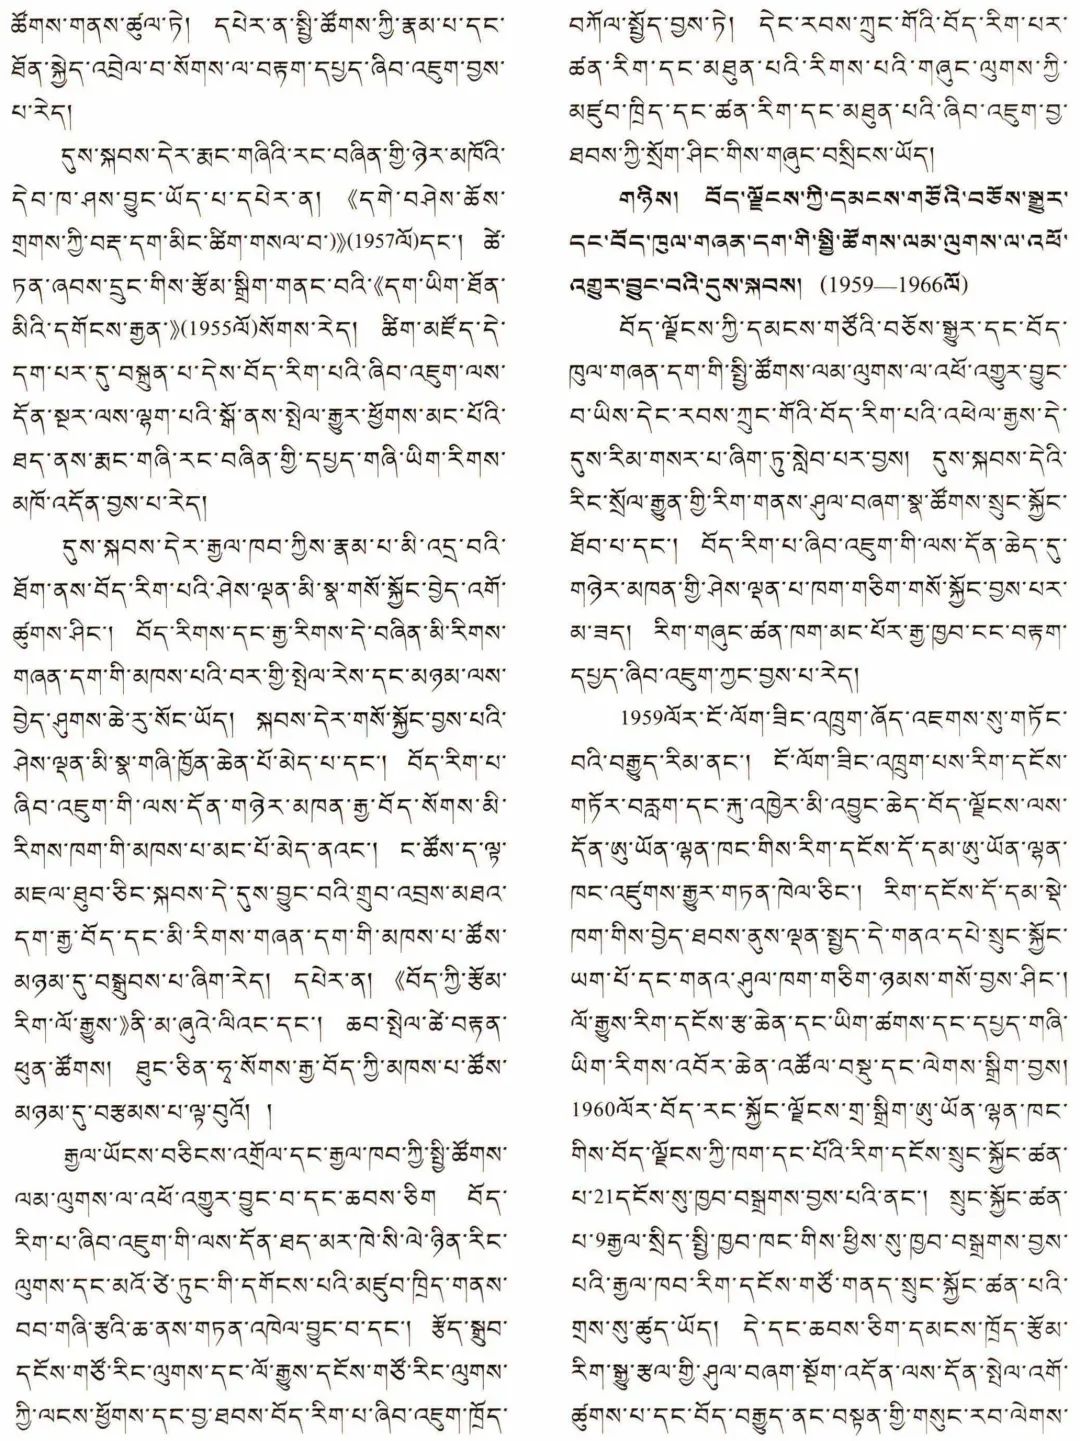 ཚོགས་གནས་ཚུལ་ཏེ། དཔེར་ན་སྤྱི་ཚོགས་ཀྱི་རྣམ་པ་དང་
ཐོན་སྐྱེད་འབྲེལ་བ་སོགས་ལ་བརྟག་དཔྱད་ཞིབ་འཇུག་བྱས་
པ་རེད།
དུས་སྐབས་དེར་རྨང་གཞིའི་རང་བཞིན་གྱི་ཉེར་མཁོའི་
དེབ་ཁ་ཤས་བྱུང་ཡོད་པ་དཔེར་ན། 《དགེ་བཤེས་ཆོས་
གྲགས་ཀྱི་བརྡ་དག་མིང་ཚིག་གསལ་བ་》(1957ལོ)དང་། ཚེ་
ཏན་ཞབས་དྲུང་གིས་རྩོམ་སྒྲིག་གནང་བའི་《དག་ཡིག་ཐོན་
མིའི་དགོངས་རྒྱན་》(1955ལོ)སོགས་རེད། ཚིག་མཛོད་དེ་
དག་པར་དུ་བསྐྲུན་པ་དེས་བོད་རིག་པའི་ཞིབ་འཇུག་ལས་
དོན་སྔར་ལས་ལྷག་པའི་སྒོ་ནས་སྤེལ་རྒྱུར་ཕྱོགས་མང་པོའི་
ཐད་ནས་རྨང་གཞི་རང་བཞིན་གྱི་དཔྱད་གཞི་ཡིག་རིགས་
མཁོ་འདོན་བྱས་པ་རེད།
དུས་སྐབས་དེར་རྒྱལ་ཁབ་ཀྱིས་རྣམ་པ་མི་འདྲ་བའི་
ཐོག་ནས་བོད་རིག་པའི་ཤེས་ལྡན་མི་སྣ་གསོ་སྐྱོང་བྱེད་འགོ་
ཚུགས་ཤིང་། བོད་རིགས་དང་རྒྱ་རིགས་དེ་བཞིན་མི་རིགས་
གཞན་དག་གི་མཁས་པའི་བར་གྱི་སྤེལ་རེས་དང་མཉམ་ལས་
བྱེད་ཤུགས་ཆེ་རུ་སོང་ཡོད། སྐབས་དེར་གསོ་སྐྱོང་བྱས་པའི་
ཤེས་ལྡན་མི་སྣ་གཞི་ཁྱོན་ཆེན་པོ་མེད་པ་དང་། བོད་རིག་པ་
ཞིབ་འཇུག་གི་ལས་དོན་གཉེར་མཁན་རྒྱ་བོད་སོགས་མི་
རིགས་ཁག་གི་མཁས་པ་མང་པོ་མེད་ནའང་། ང་ཚོས་ད་ལྟ་
མཇལ་ཐུབ་ཅིང་སྐབས་དེ་དུས་བྱུང་བའི་གྲུབ་འབྲས་མཐའ་
དག་རྒྱ་བོད་དང་མི་རིགས་གཞན་དག་གི་མཁས་པ་ཚོས་
མཉམ་དུ་བསྒྲུབས་པ་ཞིག་རེད། དཔེར་ན། 《བོད་ཀྱི་རྩོམ་
རིག་ལོ་རྒྱུས་》ནི་མ་ཞུའེ་ལིའང་དང་། ཆབ་སྤེལ་ཚེ་བརྟན་
ཕུན་ཚོགས། ཐུང་ཅིན་ཧྭ་སོགས་རྒྱ་བོད་ཀྱི་མཁས་པ་ཚོས་
མཉམ་དུ་བརྩམས་པ་ལྟ་བུའོ། །
རྒྱལ་ཡོངས་བཅིངས་འགྲོལ་དང་རྒྱལ་ཁབ་ཀྱི་སྤྱི་ཚོགས་
ལམ་ལུགས་ལ་འཕོ་འགྱུར་བྱུང་བ་དང་ཆབས་ཅིག བོད་
རིག་པ་ཞིབ་འཇུག་གི་ལས་དོན་ཐད་མར་ཁེ་སི་ལེ་ཉིན་རིང་
ལུགས་དང་མའོ་ཙེ་ཏུང་གི་དགོངས་པའི་མཛུབ་ཁྲིད་གནས་
བབ་གཞི་རྩའི་ཆ་ནས་གཏན་འཁེལ་བྱུང་བ་དང་། རྩོད་སྒྲུབ་
དངོས་གཙོ་རིང་ལུགས་དང་ལོ་རྒྱུས་དངོས་གཙོ་རིང་ལུགས་
ཀྱི་ལངས་ཕྱོགས་དང་བྱ་ཐབས་བོད་རིག་པ་ཞིབ་འཇུག་ཁྲོད་
བཀོལ་སྤྱོད་བྱས་ཏེ། དེང་རབས་ཀྲུང་གོའི་བོད་རིག་པར་
ཚན་རིག་དང་མཐུན་པའི་རིགས་པའི་གཞུང་ལུགས་ཀྱི་
མཛུབ་ཁྲིད་དང་ཚན་རིག་དང་མཐུན་པའི་ཞིབ་འཇུག་བྱ་
ཐབས་ཀྱི་སྲོག་ཤིང་གིས་གཞུང་བསྲིངས་ཡོད།
གཉིས། བོད་ལྗོངས་ཀྱི་དམངས་གཙོའི་བཅོས་སྒྱུར་
དང་བོད་ཁུལ་གཞན་དག་གི་སྤྱི་ཚོགས་ལམ་ལུགས་ལ་འཕོ་
འགྱུར་བྱུང་བའི་དུས་སྐབས། (1959—1966ལོ)
བོད་ལྗོངས་ཀྱི་དམངས་གཙོའི་བཅོས་སྒྱུར་དང་བོད་
ཁུལ་གཞན་དག་གི་སྤྱི་ཚོགས་ལམ་ལུགས་ལ་འཕོ་འགྱུར་བྱུང་
བ་ཡིས་དེང་རབས་ཀྲུང་གོའི་བོད་རིག་པའི་འཕེལ་རྒྱས་དེ་
དུས་རིམ་གསར་པ་ཞིག་ཏུ་སླེབ་པར་བྱས། དུས་སྐབས་དེའི་
རིང་སྲོལ་རྒྱུན་གྱི་རིག་གནས་ཤུལ་བཞག་སྣ་ཚོགས་སྲུང་སྐྱོང་
ཐོབ་པ་དང་། བོད་རིག་པ་ཞིབ་འཇུག་གི་ལས་དོན་ཆེད་དུ་
གཉེར་མཁན་གྱི་ཤེས་ལྡན་པ་ཁག་གཅིག་གསོ་སྐྱོང་བྱས་པར་
མ་ཟད། རིག་གཞུང་ཚན་ཁག་མང་པོར་རྒྱ་ཁྱབ་ངང་བརྟག་
དཔྱད་ཞིབ་འཇུག་ཀྱང་བྱས་པ་རེད།
1959ལོར་ངོ་ལོག་ཟིང་འཁྲུག་ཞོད་འཇགས་སུ་གཏོང་
བའི་བརྒྱུད་རིམ་ནང་། ངོ་ལོག་ཟིང་འཁྲུག་པས་རིག་དངོས་
གཏོར་བརླག་དང་རྐུ་འཁྱེར་མི་འབྱུང་ཆེད་བོད་ལྗོངས་ལས་
དོན་ཨུ་ཡོན་ལྷན་ཁང་གིས་རིག་དངོས་དོ་དམ་ཨུ་ཡོན་ལྷན་
ཁང་འཛུགས་རྒྱུར་གཏན་ཁེལ་ཅིང་། རིག་དངོས་དོ་དམ་སྡེ་
ཁག་གིས་བྱེད་ཐབས་ནུས་ལྡན་སྤྱད་དེ་གནའ་དཔེ་སྲུང་སྐྱོང་
ཡག་པོ་དང་གནའ་ཤུལ་ཁག་གཅིག་ཉམས་གསོ་བྱས་ཤིང་།
ལོ་རྒྱུས་རིག་དངོས་རྩ་ཆེན་དང་ཡིག་ཚགས་དང་དཔྱད་གཞི་
ཡིག་རིགས་འབོར་ཆེན་འཚོལ་བསྡུ་དང་ལེགས་སྒྲིག་བྱས།
1960ལོར་བོད་རང་སྐྱོང་ལྗོངས་གྲ་སྒྲིག་ཨུ་ཡོན་ལྷན་ཁང་
གིས་བོད་ལྗོངས་ཀྱི་ཁག་དང་པོའི་རིག་དངོས་སྲུང་སྐྱོང་ཚན་
པ་21དངོས་སུ་ཁྱབ་བསྒྲགས་བྱས་པའི་ནང་། སྲུང་སྐྱོང་ཚན་
པ་9རྒྱལ་སྲིད་སྤྱི་ཁྱབ་ཁང་གིས་ཕྱིས་སུ་ཁྱབ་བསྒྲགས་བྱས་
པའི་རྒྱལ་ཁབ་རིག་དངོས་གཙོ་གནད་སྲུང་སྐྱོང་ཚན་པའི་
གྲས་སུ་ཚུད་ཡོད། དེ་དང་ཆབས་ཅིག་དམངས་ཁྲོད་རྩོམ་
རིག་སྒྱུ་རྩལ་གྱི་ཤུལ་བཞག་སྔོག་འདོན་ལས་དོན་སྤེལ་འགོ་
ཚུགས་པ་དང་བོད་བརྒྱུད་ནང་བསྟན་གྱི་གསུང་རབ་ལེགས་